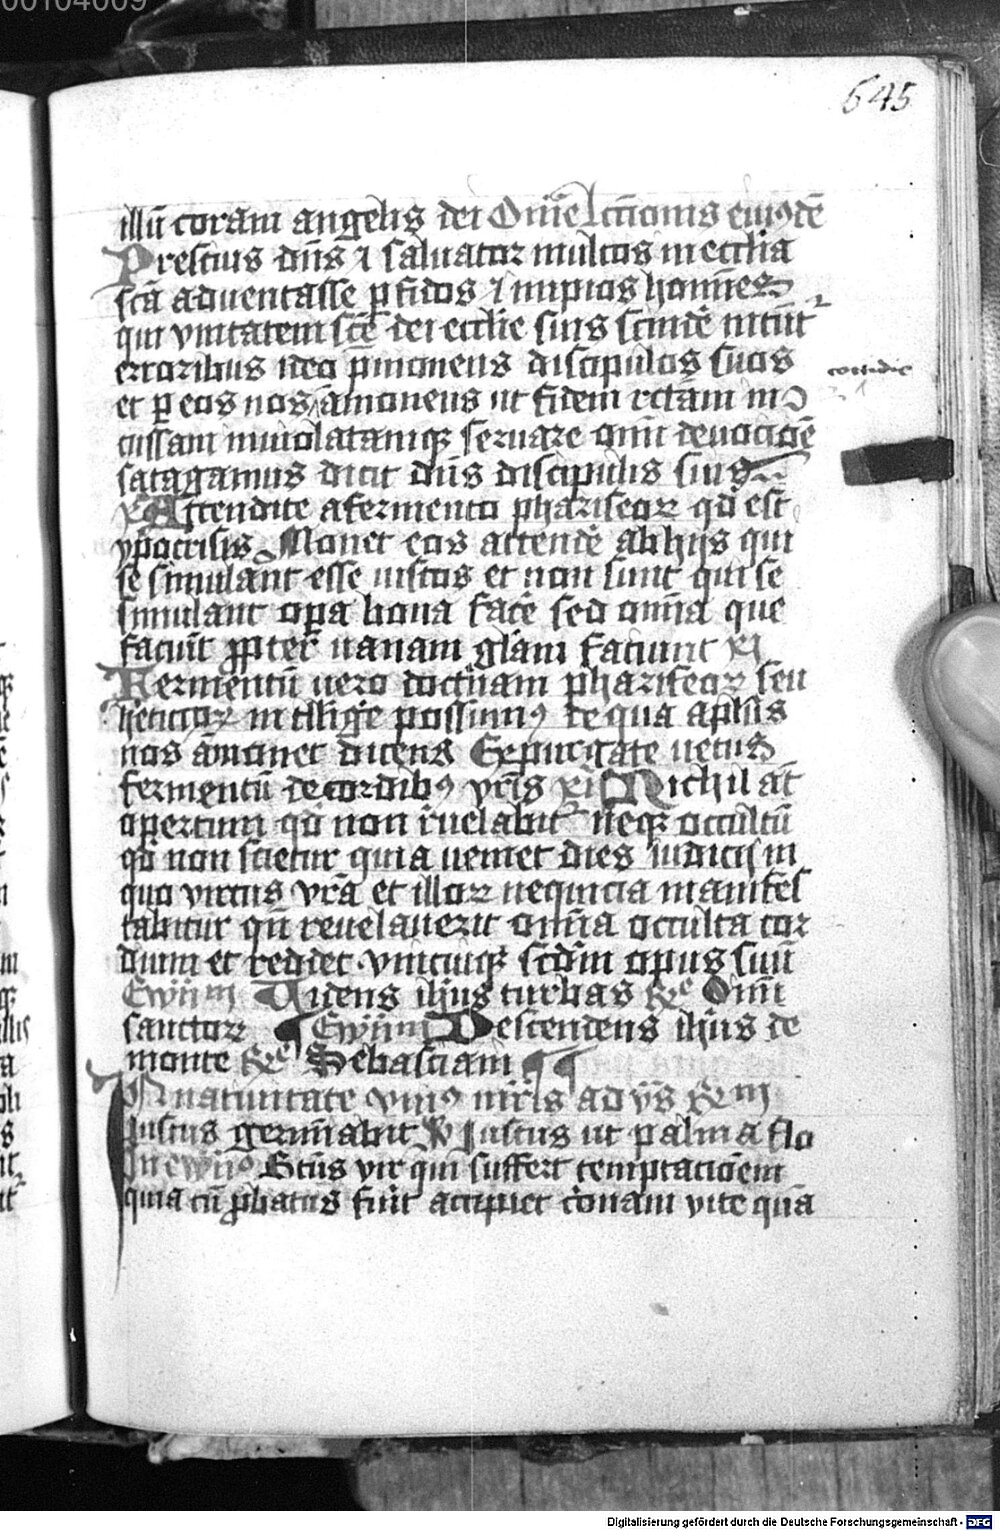 00104009
645
illū coram angelis dei Om̄e lctionis eiusdē
Prescius dn̄s ⁊ saluator multos in eccl̄ia
scā aduentasse ꝑfidos ⁊ impios homīes
qui vnitatem scē dei eccl̄ie suis scindē nitūt᷒
erroribus ideo p̄monens discipulos suos
et ꝑ eos nos āmonens ut fidem rctām in
cottidie
cussam inuiolatamqꝫ seruare om̄i deuocōe
satagamus dicit dn̄s discipulis suis
Attendite a fermento phariseoꝝ qd̄ est
ypocrisis Monet eos attendē ab hijs qui
se simulant esse iustos et non sunt qui se
simulant oꝑa bona facē sed om̄ia que
faciūt ꝓpter uanam gl̄am faciunt xi
Fermentū uero doctnam phariseoꝝ seu
hēticoꝝ intlligē possumꝰ de qua apl̄us
nos āmonet dicens Expurgate uetus
fermentū de cordibꝰ vr̄is xii Nichil at̄
opertum qd̄ non r̄uelabit᷒ neqꝫ occultū
qd̄ non scietur quia ueniet dies iudicij in
quo virtus vr̄a et illoꝝ nequicia manifes
tabitur qn̄ reuelauerit om̄ia occulta cor
dium et reddet vnicuiqꝫ scdm̄ opus suū
Ewn̄m Uidens ihūs turbas ⁊c̄ Om̄i
sanctoꝝ Ewn̄m Descendens ihūs de
monte ⁊c̄ Sebastiani
In natiuitate vniꝰ mr̄is ad vs̄ ℟m
Iustus germīabit ℣ Iustus ut palma flo
In ewn̄o Btūs vir qui suffert temptacōem
quia cū ꝓbatus fūit accipiet cōnam vite quā
Digitalisierung gefördert durch die Deutsche Forschungsgemeinschaft - DFG